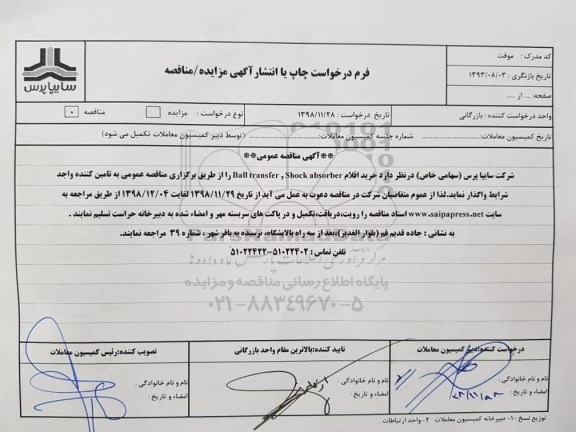 کد مدرک : موقت
تاریخ بازنگری : ۱۳۹۳/۰۸/۰۳
صفحه: ... از ....
فرم درخواست چاپ یا انتشار آگهی مزایده/مناقصه
سایپا پرس
واحد درخواست کننده : بازرگانی
تاریخ درخواست : ۱۳۹۸/۱۱/۲۸
نوع درخواست : مزایده مناقصه
تاریخ کمیسیون معاملات: شماره جلسه کمیسیون معاملات: (توسط دبیر کمیسیون معاملات تکمیل می شود)
**آگهی مناقصه عمومی**
شرکت سایپا پرس (سهامی خاص) درنظر دارد خرید اقلام Ball transfer , Shock absorber را از طریق برگزاری مناقصه عمومی به تامین کننده واجد
شرایط واگذار نماید.لذا از عموم متقاضیان شرکت در مناقصه دعوت به عمل می آید از تاریخ ۱۳۹۸/۱۱/۲۹ لغایت ۱۳۹۸/۱۲/۰۴ از طریق مراجعه به
سایت www.saipapress.net اسناد مناقصه را رویت،دریافت،تکمیل و در پاکت های سربسته مهر و امضاء شده به دبیرخانه حراست تسلیم نمایند .
به نشانی : جاده قدیم قم (بلوار الغدیر)،بعد از سه راه پالایشگاه، نرسیده به باقر شهر ، شماره ۳۹ مراجعه نمایند.
تلفن تماس : ۵۱۰۲۲۴۰۲-۵۱۰۲۲۴۲۲
ParsNamadData
مرکز فرآوری اطلاعات پارس نماد داده ها
پایگاه اطلاع رسانی مناقصه و مزایده
۰۲۱-۸۸۳۴۹۶۷۰-۵
درخواست کننده:دبیر کمیسیون معاملات
تایید کننده:بالاترین مقام واحد بازرگانی
تصویب کننده:رئیس کمیسیون معاملات
نام و نام خانوادگی :
امضاء و تاریخ :
نام و نام خانوادگی :
امضاء و تاریخ :
نام و نام خانوادگی :
امضاء و تاریخ :
توزیع نسخ : ۱- دبیرخانه کمیسیون معاملات ۲- واحد ارتباطات